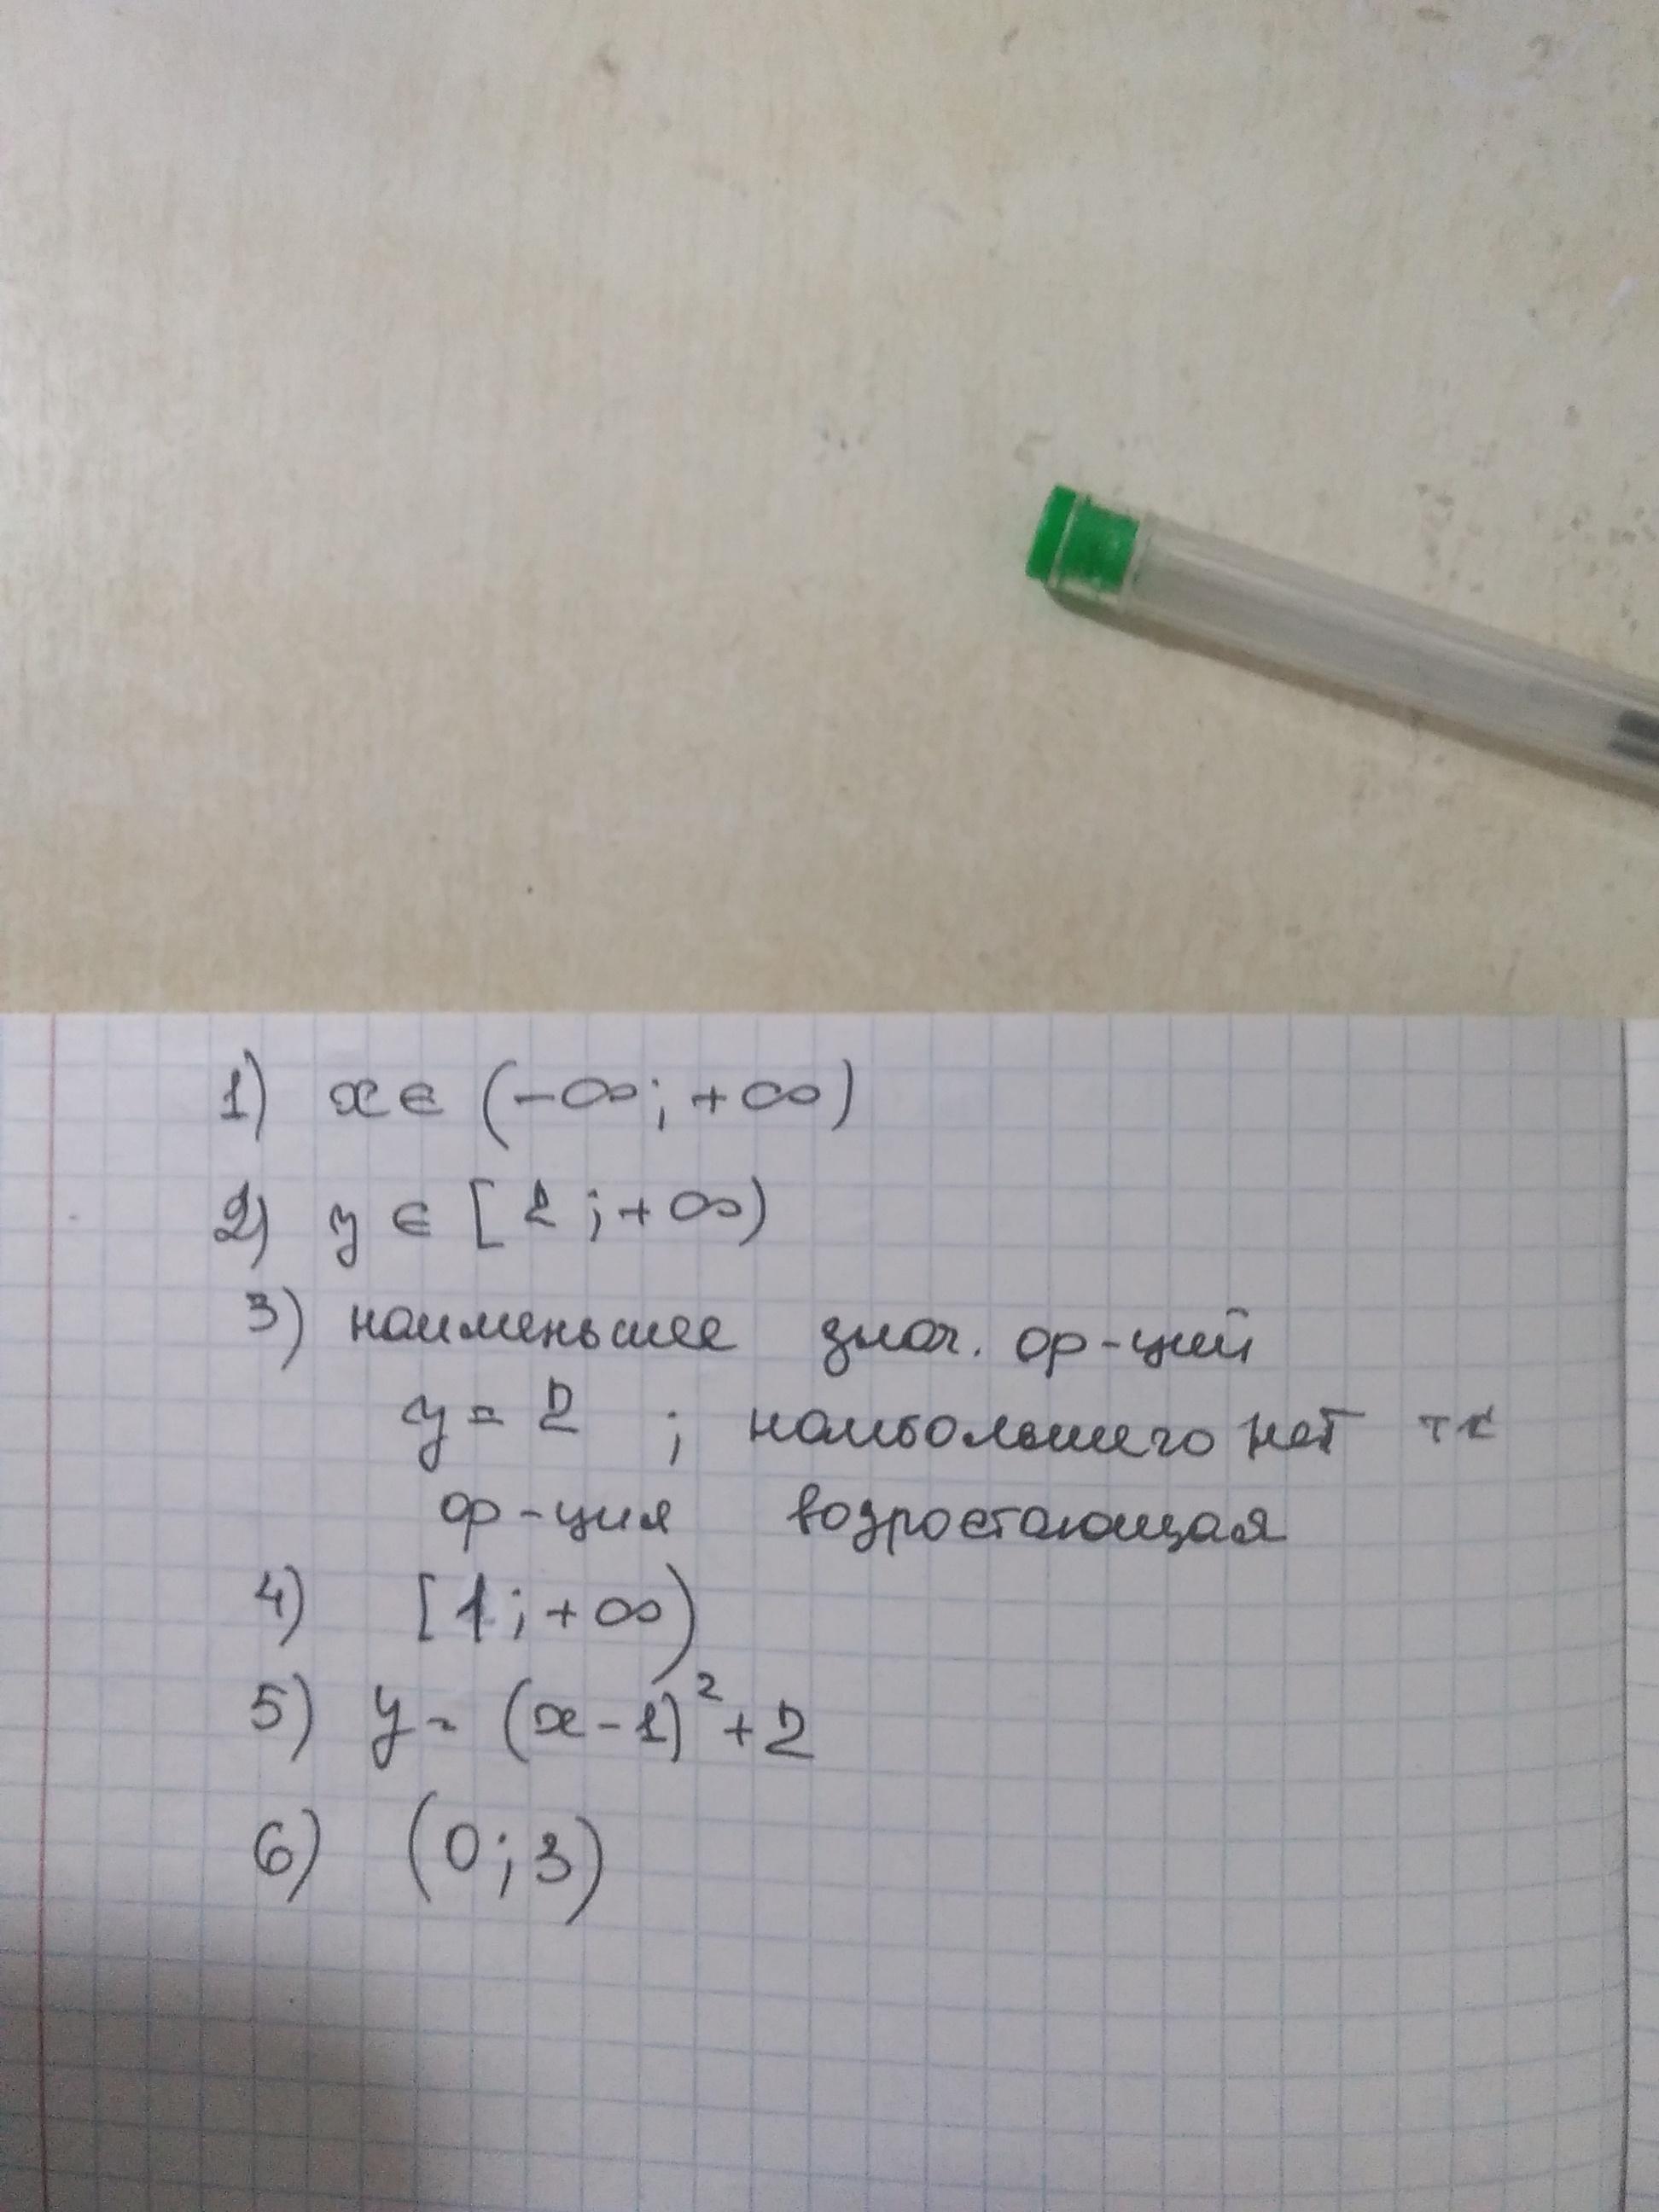 1) x ∈ (-∞; +∞)
2) y ∈ [2; +∞)
3) наименьшее знач. ф-ций
y = 2 ; наибольшего нет тк
ф-ция возростающая
4) [1; +∞)
5) y = (x-1)² + 2
6) (0; 3)